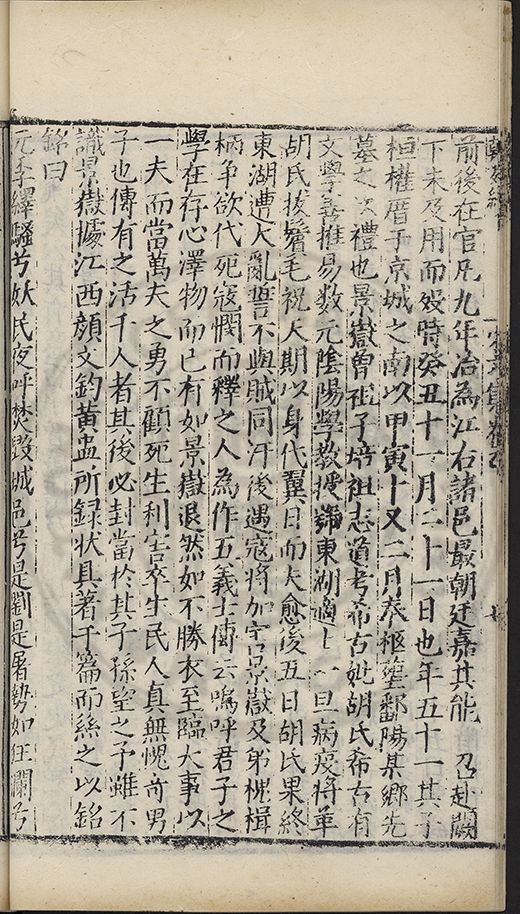 前後在官凡九年治為江右諸邑最朝廷嘉其能召赴闕
下未及用而歿時癸丑十一月二十一日也年五十一其子
桓權厝于京城之南以甲寅十又二月奉柩塟鄱陽某鄉先
墓之次禮也景嶽曾祖子培祖志道考希古妣胡氏希古有
文學善推易數元陰陽學教授號東湖適士一旦病疫將革
胡氏拔鬢毛祝天期以身代翼日而夫愈後五日胡氏果終
東湖遭大亂誓不與賊同汙後遇寇將加害景嶽及弟梲楫
柄争欲代死寇憫而釋之人為作五義士傳云嗚呼君子之
學在存心澤物而已有如景嶽退然如不勝衣至臨大事以
一夫而當萬夫之勇不顧死生利害卒生民人真無愧竒男
子也傳有之活千人者其後必封當於其子孫望之予雖不
識景嶽據江西顔文鈞黄盅所録状具著于篇而絲之以銘
銘曰
元季繹騷兮妖民夜呼焚毀城邑兮是劉是屠勢如狂瀾兮